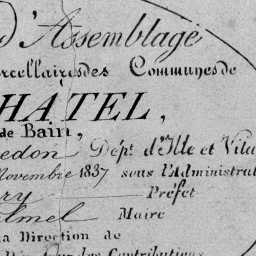 d'Assemblage
rcellaires des Communes de
HÂTEL,
de Bain,
edon Dépt d'Ille et Vila
Novembre 1837 sous l'Administrat
ry Préfet
lmel Maire
la Direction de
des Contributions